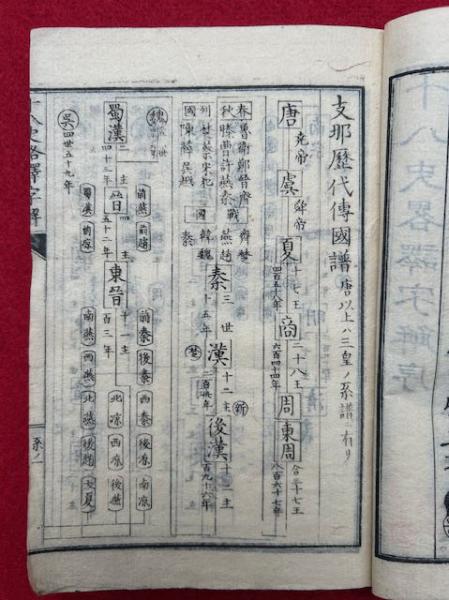 支那歷代傳國譜 唐以上ハ三皇ノ系譜ニ有リ
唐 堯帝 虞 舜帝 夏 十七王 四百五十八年 商 二十八王 六百四十四年 周 東周 合三十七王 八百六十七年
春秋 魯衛鄭晉齊 滕曹許燕秦 戰 燕趙 齊楚 秦 三世 十五年 漢 十二主 新 後漢 十二主 百九十六年
列國 楚蔡宋杞 陳薛吳越 國 韓魏 秦 楚
魏
蜀漢 二主 四十三年 晉 四主 五十二年 東晉 十一主 百三年
吳 四世五十九年
前燕 前趙
蜀漢 前涼
前秦 後秦 西秦 後涼 南涼
南燕 西燕 北涼 西涼 後燕
北燕 後趙 大夏
十八史略譯字解
系ノ一
十八史畧譯字解序